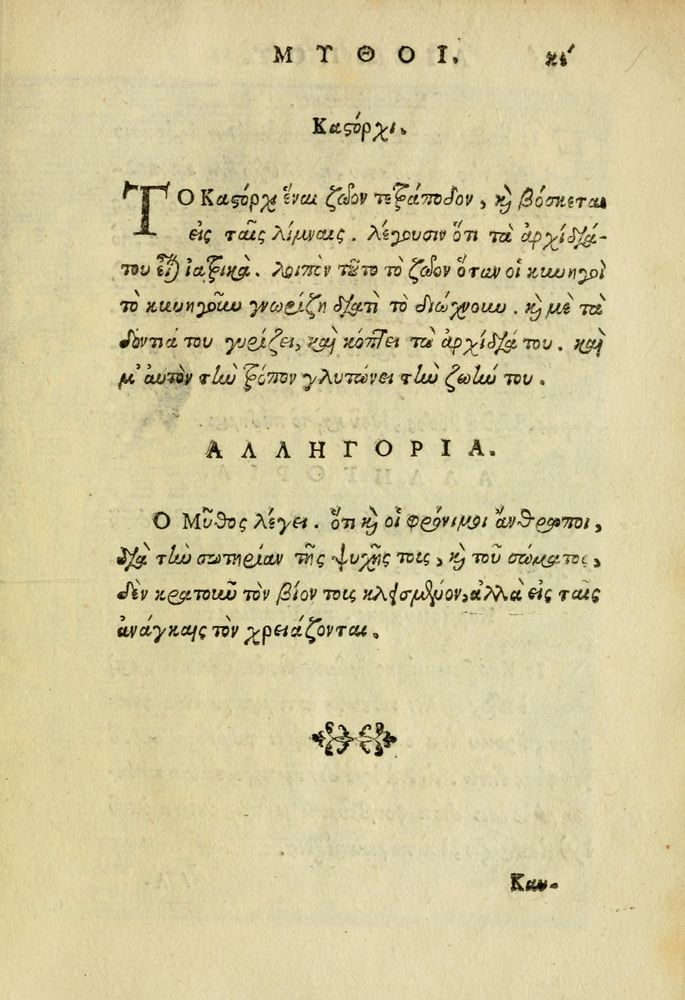 ΜΥΘΟΙ. κε´
Καστόρχι.
ΤΟ Καστόρχι ἔναι ζῶον τετράποδον, καὶ βόσκεται
εἰς ταῖς λίμναις. λέγουσιν ὅτι τὰ ἀρχίδιά-
του εἶναι ἰατρικὰ. λοιπὸν τοῦτο τὸ ζῶον ὅταν οἱ κυνηγοὶ
τὸ κυνηγοῦν γνωρίζη διατὶ τὸ διώχνουν. καὶ μὲ τὰ
δόντιά του γυρίζει, καὶ κόπτει τὰ ἀρχίδιά του. καὶ
μ' αυτὸν τὴν τρόπον γλυτώνει τὴν ζωήν του.
ΑΛΛΗΓΟΡΙΑ.
Ο Μῦθος λέγει. ὅτι καὶ οἱ φρόνιμοι ἄνθρωποι,
διὰ τὴν σωτηρίαν τῆς ψυχῆς τοις, καὶ τοῦ σώματος,
δὲν κρατοιοῦν τὸν βίον τοις κλεισμένον, ἀλλὰ εἰς ταῖς
ἀνάγκαις τὸν χρειάζονται.
Καυ-